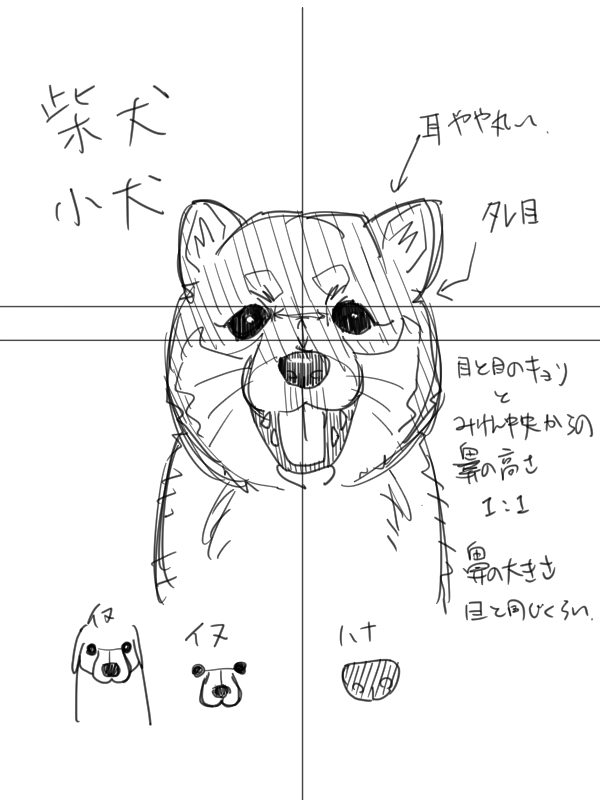 柴犬
小犬
耳やや丸い
タレ目
目と目のキョリ
と
みけん中央からの
鼻の高さ
1:1
鼻の大きさ
目と同じくらい
イヌ
イヌ
ハナ